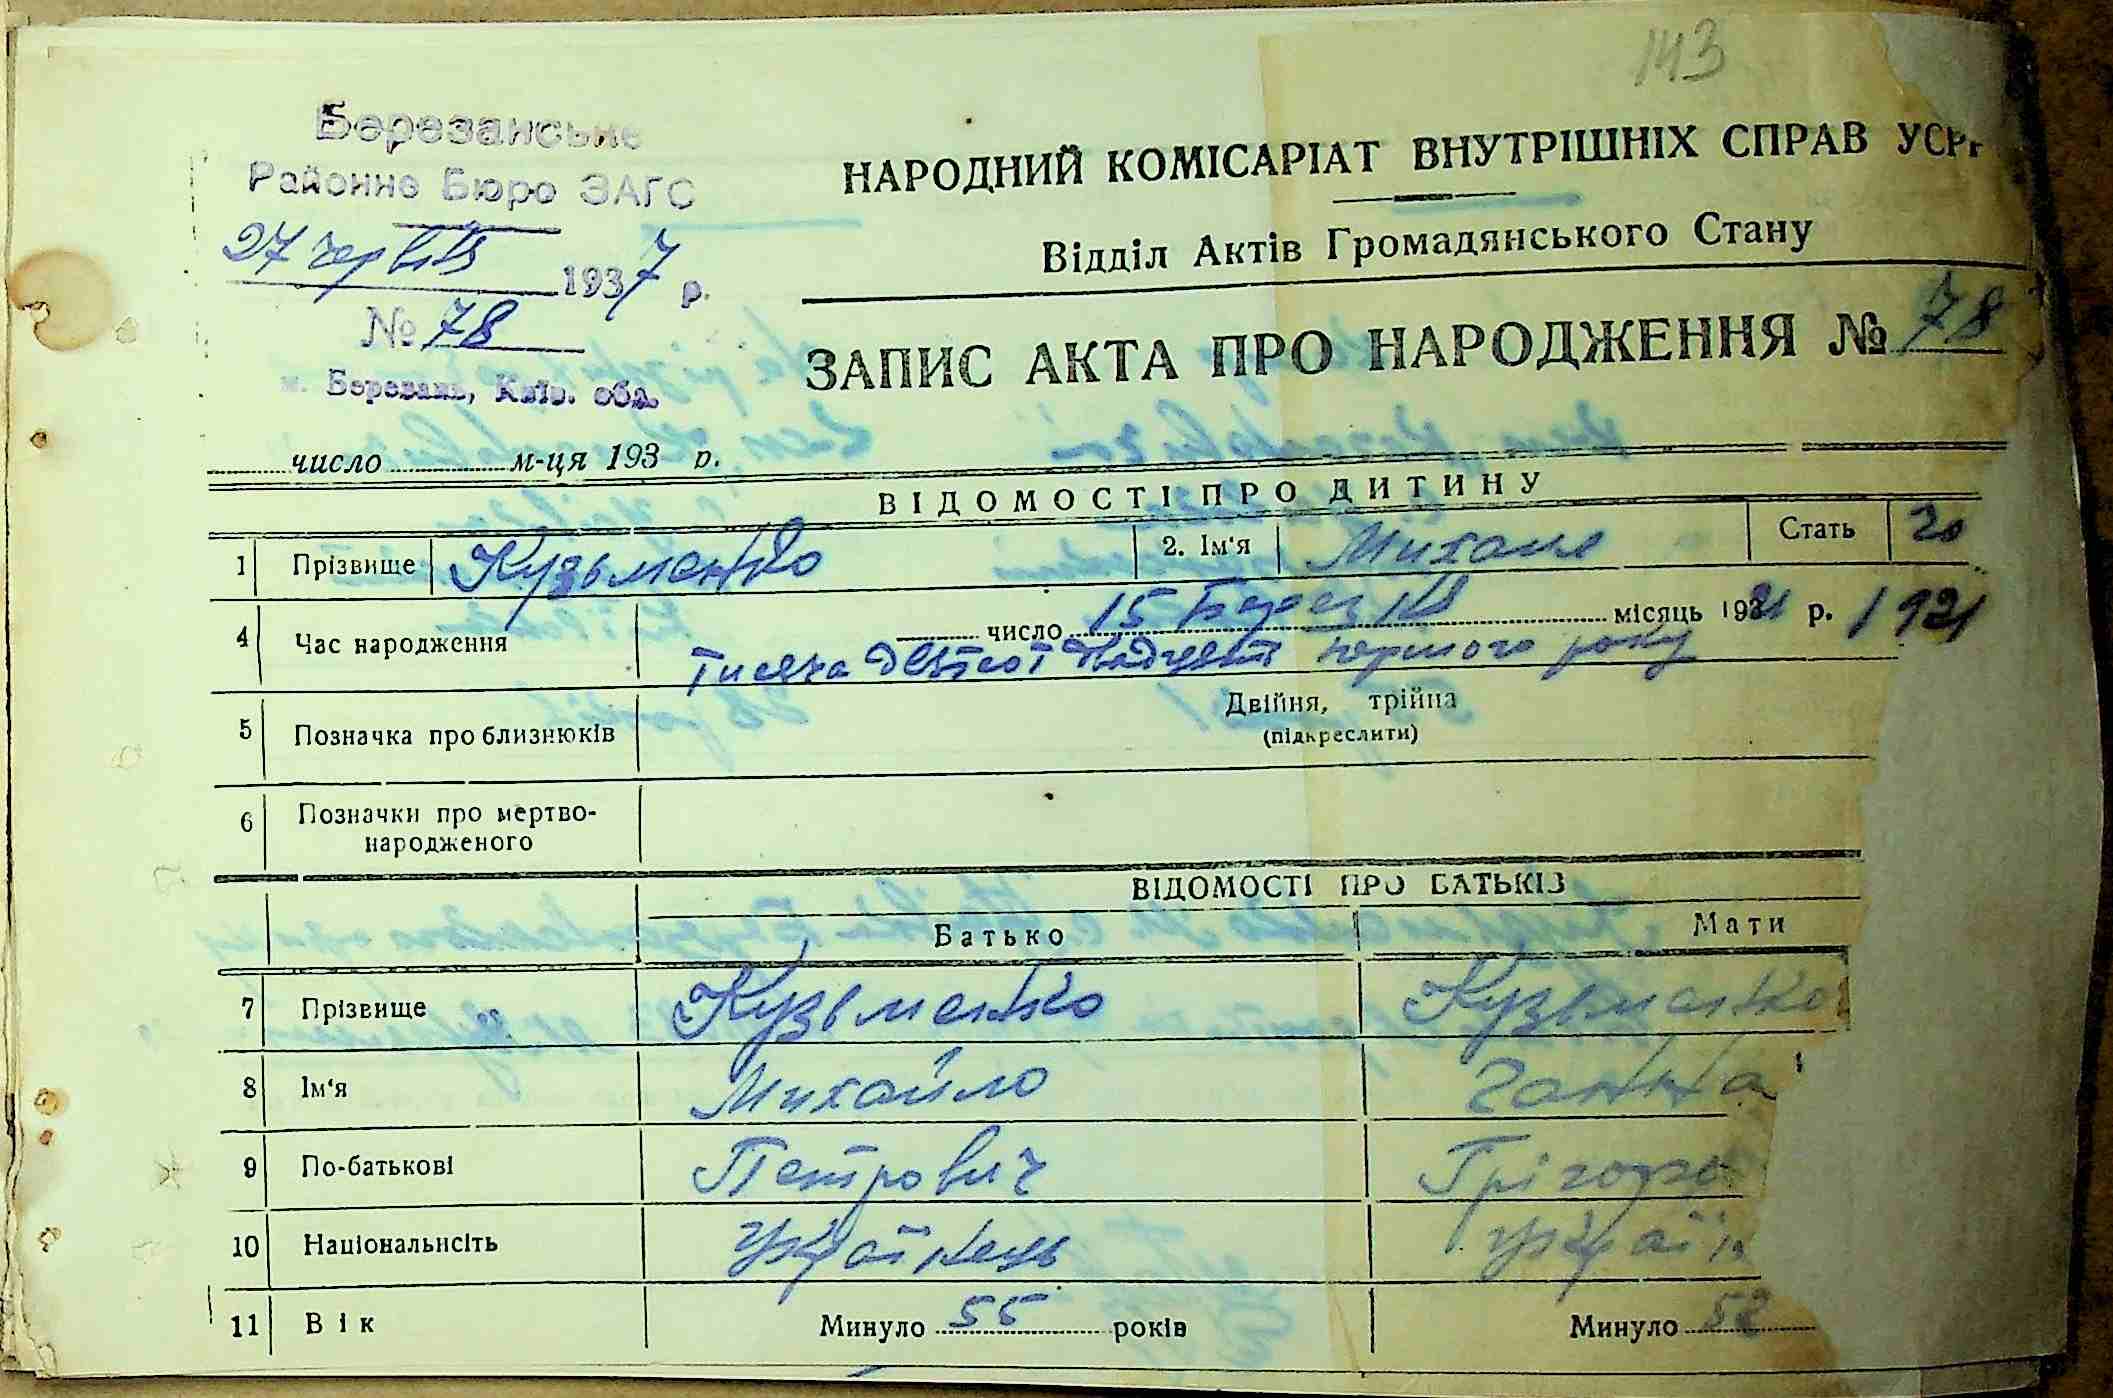 143
Березанське
Районне Бюро ЗАГС
27 червня 1937 р.
№ 78
м. Березань, Київ. обл.
НАРОДНИЙ КОМІСАРІАТ ВНУТРІШНІХ СПРАВ УСРР
Відділ Актів Громадянського Стану
ЗАПИС АКТА ПРО НАРОДЖЕННЯ № 78
число м-ця 193 р.
ВІДОМОСТІ ПРО ДИТИНУ
1 Прізвище Кузьменко 2. Ім'я Михайло Стать
4 Час народження число 15 Березня місяць 1921 р. 1921
Тисяча девятсот двадцять першого року
5 Позначка про близнюків Двійня, трійна
(підкреслити)
6 Позначки про мертво-
народженого
ВІДОМОСТІ ПРО БАТЬКІВ
Батько Мати
7 Прізвище Кузьменко Кузьменко
8 Ім'я Михайло Ганна
9 По-батькові Петрович Грігоро
10 Національність Українець Украї
11 Вік Минуло 55 років Минуло 52